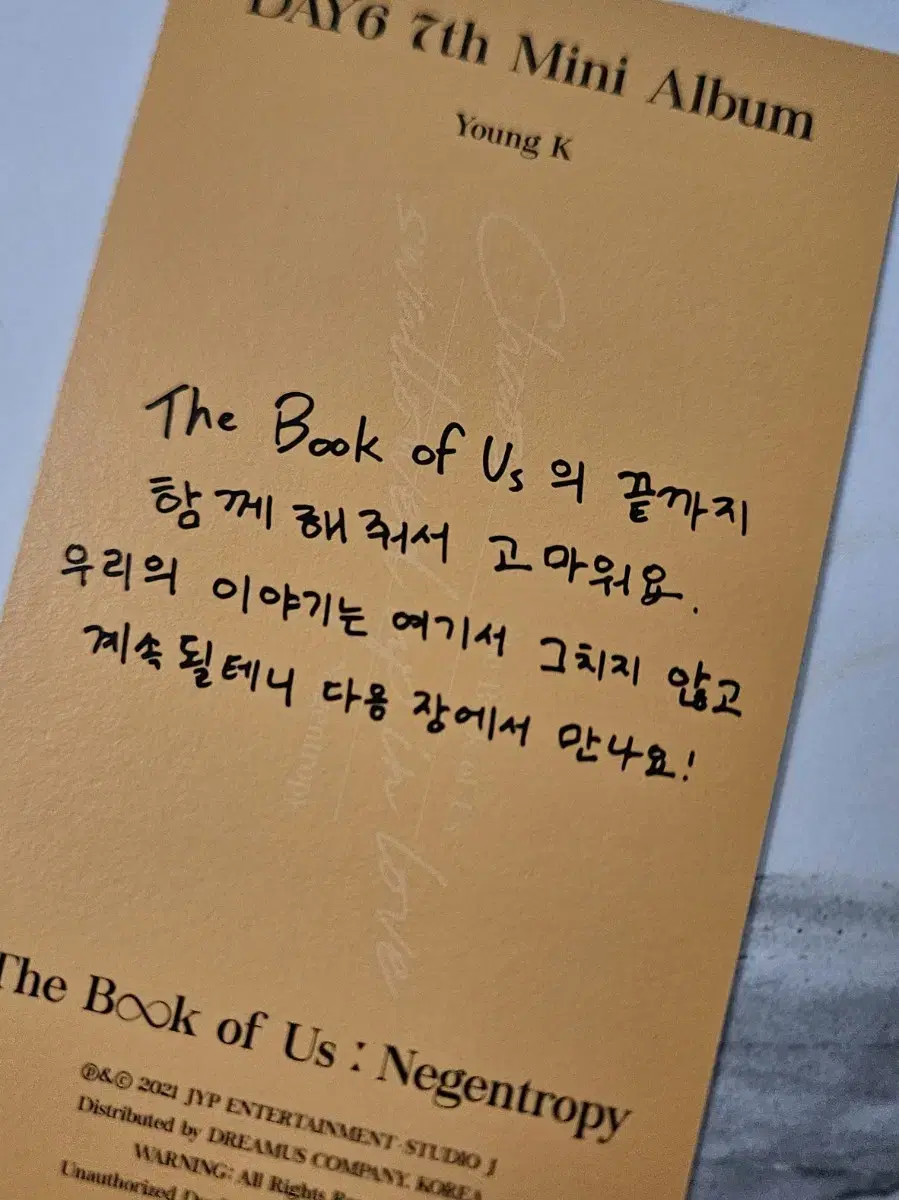 DAY6 7th Mini Album
Young K
The Book of Us의 끝까지
함께 해줘서 고마워요.
우리의 이야기는 여기서 그치지 않고
계속 될테니 다음 장에서 만나요!
The Book of Us : Negentropy
℗&© 2021 JYP ENTERTAINMENT·STUDIO J
Distributed by DREAMUS COMPANY, KOREA
WARNING: All Rights
Unauthorized